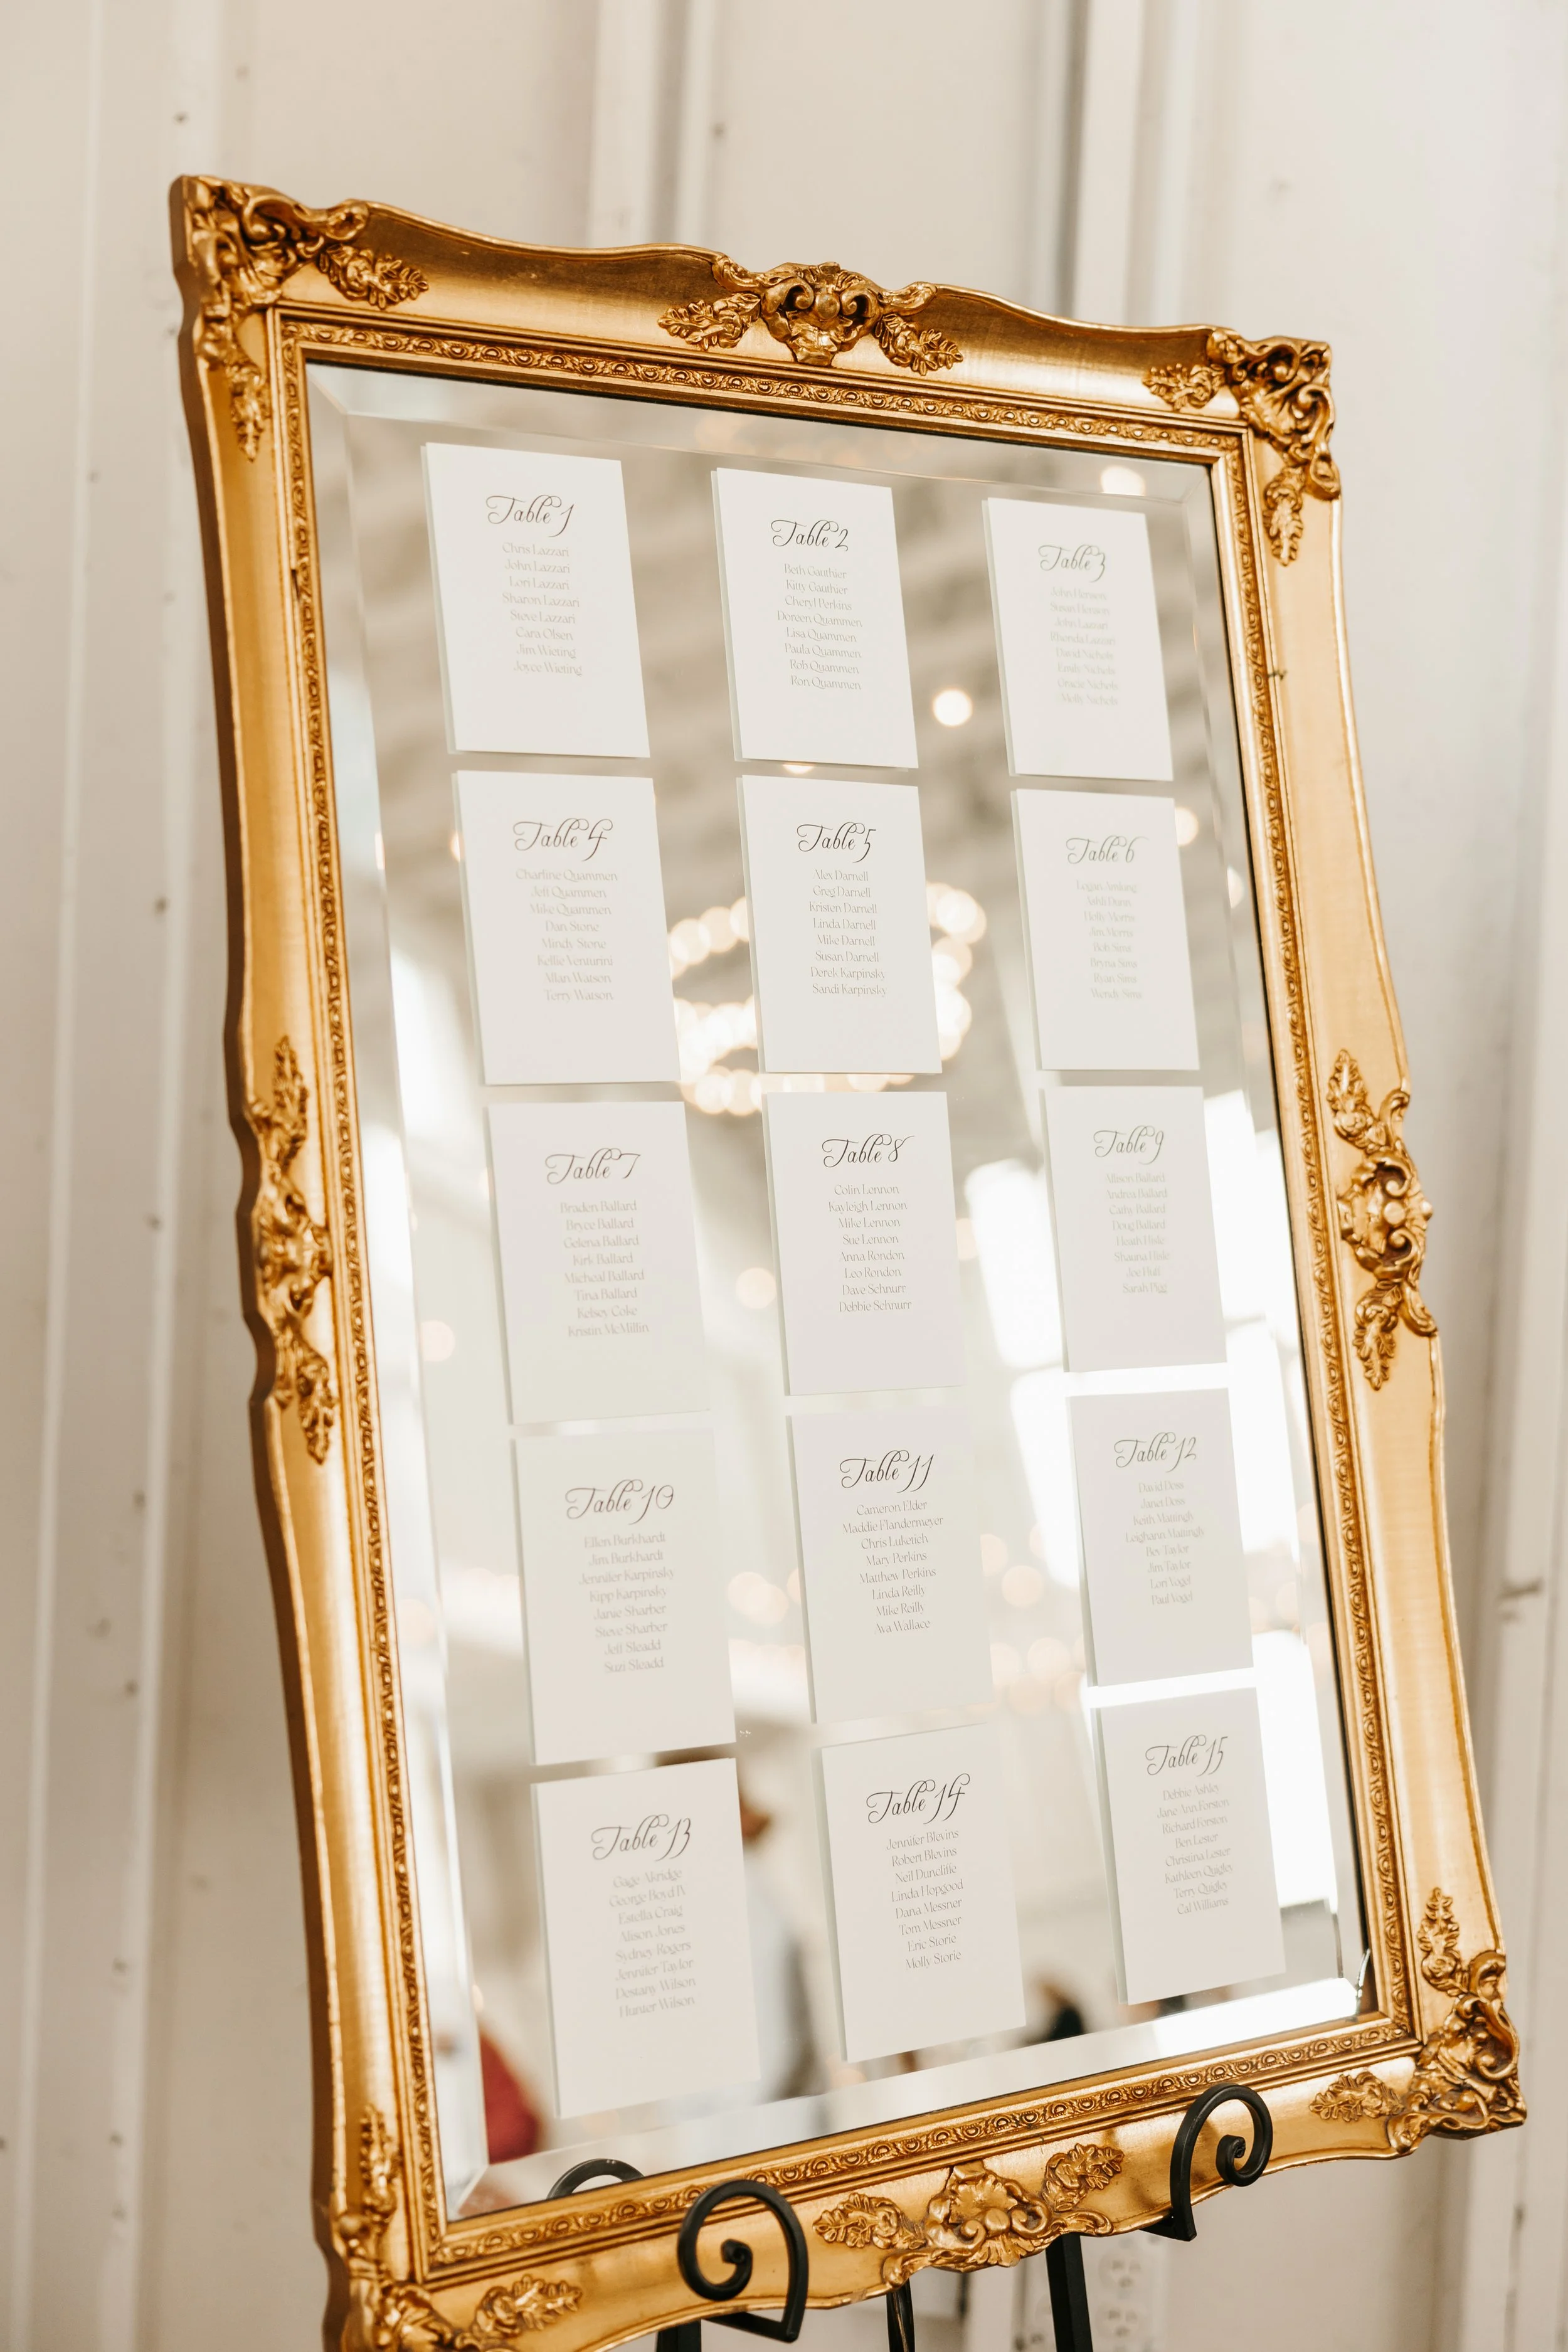 Table 1
Chris Lazzari
John Lazzari
Lori Lazzari
Sharon Lazzari
Steve Lazzari
Cara Olsen
Jim Wieting
Joyce Wieting
Table 2
Beth Gauthier
Kitty Gauthier
Cheryl Perkins
Doreen Quammen
Lisa Quammen
Paula Quammen
Rob Quammen
Ron Quammen
Table 3
John Henson
Susan Henson
John Lazzari
Rhonda Lazzari
David Nichols
Emily Nichols
Gracie Nichols
Molly Nichols
Table 4
Charline Quammen
Jeff Quammen
Mike Quammen
Dan Stone
Mindy Stone
Kellie Venturini
Allan Watson
Terry Watson
Table 5
Alex Darnell
Greg Darnell
Kristen Darnell
Linda Darnell
Mike Darnell
Susan Darnell
Derek Karpinsky
Sandi Karpinsky
Table 6
Logan
Holly Morris
Jim Morris
Bob Sims
Bryna Sims
Ryan Sims
Wendy Sims
Table 7
Braden Ballard
Bryce Ballard
Gelena Ballard
Kirk Ballard
Micheal Ballard
Tina Ballard
Kelsey Coke
Kristin McMillin
Table 8
Colin Lennon
Kayleigh Lennon
Mike Lennon
Sue Lennon
Anna Rondon
Leo Rondon
Dave Schnurr
Debbie Schnurr
Table 9
Allison Ballard
Andrea Ballard
Cathy Ballard
Doug Ballard
Heath Hisle
Shauna Hisle
Joe Huff
Sarah Pigg
Table 10
Ellen Burkhardt
Jim Burkhardt
Jennifer Karpinsky
Kipp Karpinsky
Janie Sharber
Steve Sharber
Jeff Sleadd
Suzi Sleadd
Table 11
Cameron Elder
Maddie Flandermeyer
Chris Lukovich
Mary Perkins
Matthew Perkins
Linda Reilly
Mike Reilly
Ava Wallace
Table 12
David Doss
Janet Doss
Keith Mattingly
Leighann Mattingly
Bev Taylor
Jim Taylor
Lori Vogel
Paul Vogel
Table 13
Gage Akridge
George Boyd IV
Estella Craig
Alison Jones
Sydney Rogers
Jennifer Taylor
Destany Wilson
Hunter Wilson
Table 14
Jennifer Blevins
Robert Blevins
Neil Duncliffe
Linda Hopgood
Dana Messner
Tom Messner
Eric Storie
Molly Storie
Table 15
Debbie Ashley
Jane Ann Forston
Richard Forston
Ben Lester
Christina Lester
Kathleen Quigley
Terry Quigley
Cal Williams